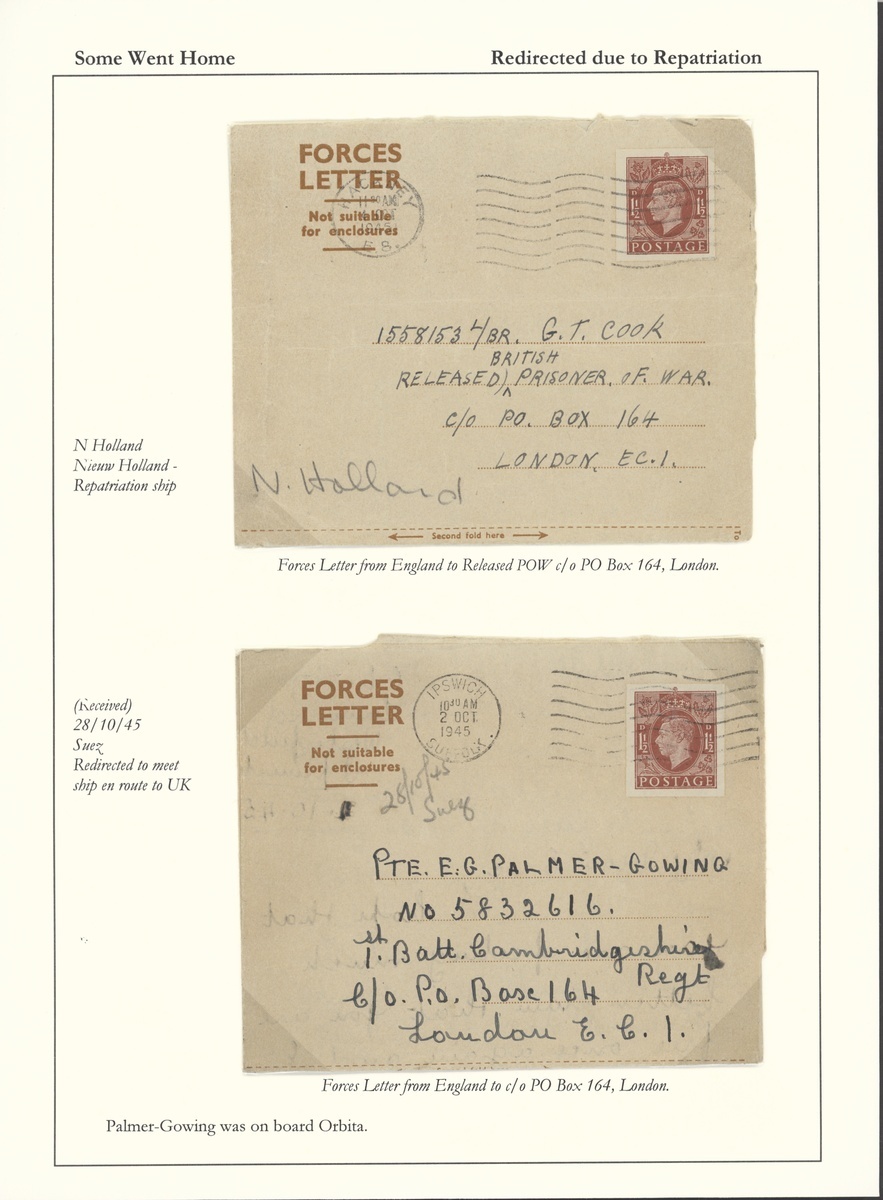 Some Went Home
Redirected due to Repatriation
FORCES
LETTER
Not suitable
for enclosures
HACKNEY
11 30 AM
1945
E 8.
1½D 1½D
POSTAGE
1558153 L/BR. G.T. COOK
BRITISH
RELEASED) PRISONER. OF. WAR.
C/O PO. BOX 164
LONDON. EC.1.
N. Holland
Second fold here
To
N Holland
Nieuw Holland -
Repatriation ship
Forces Letter from England to Released POW c/o PO Box 164, London.
FORCES
LETTER
Not suitable
for enclosures
IPSWICH
10 30 AM
2 OCT
1945
SUFFOLK
1½D 1½D
POSTAGE
28/10/45
Suez
PTE. E.G. PALMER-GOWING
NO 5832616.
1st. Batt. Cambridgeshire
Regt
C/o. P.O. Base 164
London E.C.1.
(Received)
28/10/45
Suez
Redirected to meet
ship en route to UK
Forces Letter from England to c/o PO Box 164, London.
Palmer-Gowing was on board Orbita.